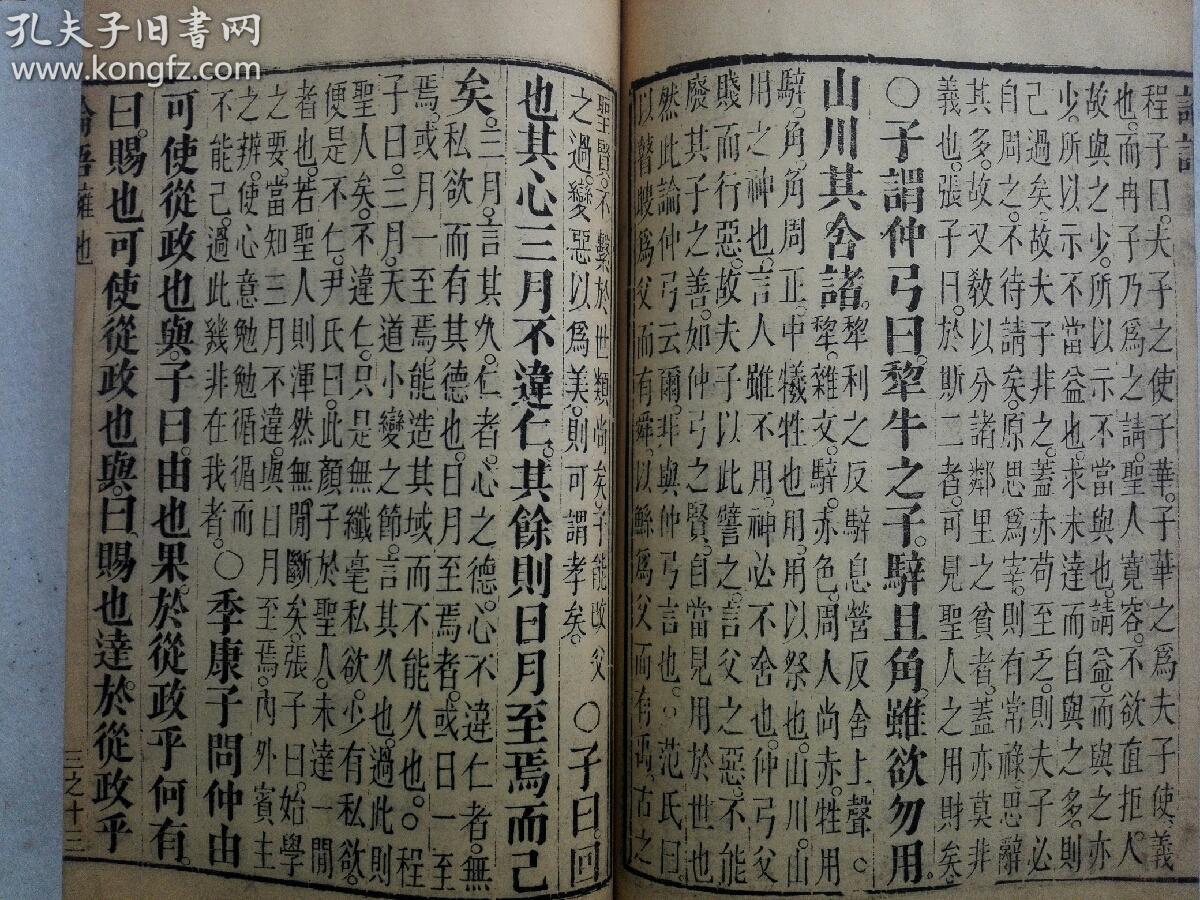 孔夫子旧书网
www.kongfz.com
程子曰。夫子之使子華。子華之爲夫子使。義
也。而冉子乃爲之請。聖人寬容。不欲直拒人。
故與之少。所以示不當與也。請益。而與之亦
少。所以示不當益也。求未達而自與之多。則
己過矣。故夫子非之。蓋赤苟至乏。則夫子必
自周之。不待請矣。原思爲宰。則有常祿。思辭
其多。故又敎以分諸鄰里之貧者。蓋亦莫非
義也。張子曰。於斯二者。可見聖人之用財矣。
○子謂仲弓曰。犂牛之子。騂且角。雖欲勿用。
山川其舍諸。犂利之反騂息營反舍上聲○
犂。雜文。騂。赤色。周人尚赤。牲用
騂。角。角周正。中犧牲也。用。用以祭也。山川。山
用之神也。言人雖不用。神必不舍也。仲弓父
賤而行惡。故夫子以此譬之。言父之惡。不能
廢其子之善。如仲弓之賢。自當見用於世也
然此論仲弓云爾。非與仲弓言也。范氏曰。
以瞽瞍爲父而有舜。以鯀爲父而有禹。古之
聖賢。不繫於世類尚矣。子能改父
之過。變惡以爲美。則可謂孝矣。○子曰。回
也其心三月不違仁。其餘則日月至焉而已
矣。三月。言其久。仁者。心之德。心不違仁者。無
私欲而有其德也。日月至焉者。或日一至
焉。或月一至焉。能造其域而不能久也。○程
子曰。三月。天道小變之節。言其久也。過此則
聖人矣。不違仁。只是無纖毫私欲。少有私欲。
便是不仁。尹氏曰。此顏子於聖人。未達一閒
者也。若聖人則渾然無閒斷矣。張子曰。始學
之要。當知三月不違。與日月至焉。內外賓主
之辨。使心意勉勉循循而
不能已。過此幾非在我者。○季康子問仲由
可使從政也與。子曰。由也果。於從政乎何有。
曰。賜也可使從政也與。曰。賜也達。於從政乎
論語雍也
三之十三